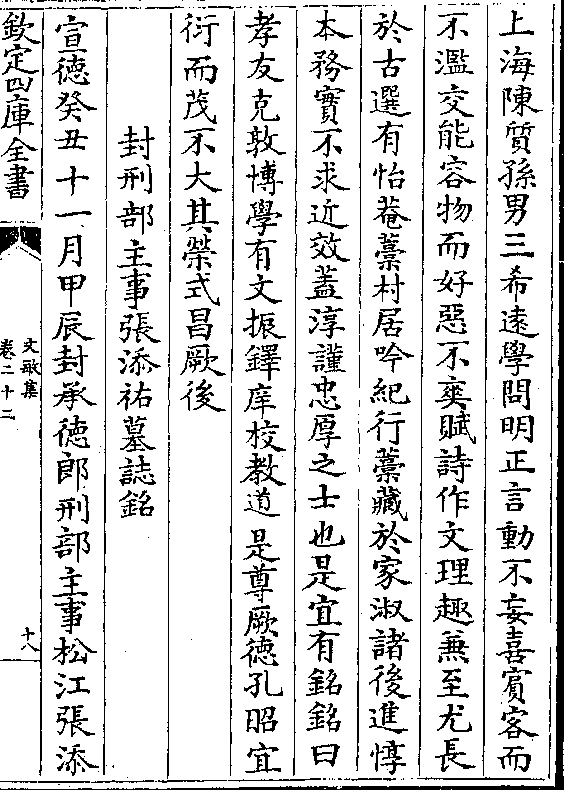 上海陳質孫男三希逺學問明正言動不妄喜賓客而
不濫交能容物而好惡不爽賦詩作文理趣兼至尤長
於古選有怡菴藁村居吟紀行藁藏於家淑諸後進惇
本務實不求近效蓋淳謹忠厚之士也是宜有銘銘曰
孝友克敦博學有文振鐸庠校教道是尊厥徳孔昭宜
衍而茂不大其榮式昌厥後
封刑部主事張添祐墓誌銘
宣徳癸丑十一月甲辰封承徳郎刑部主事松江張添
欽定四庫全書
文敏集
卷二十二
十八